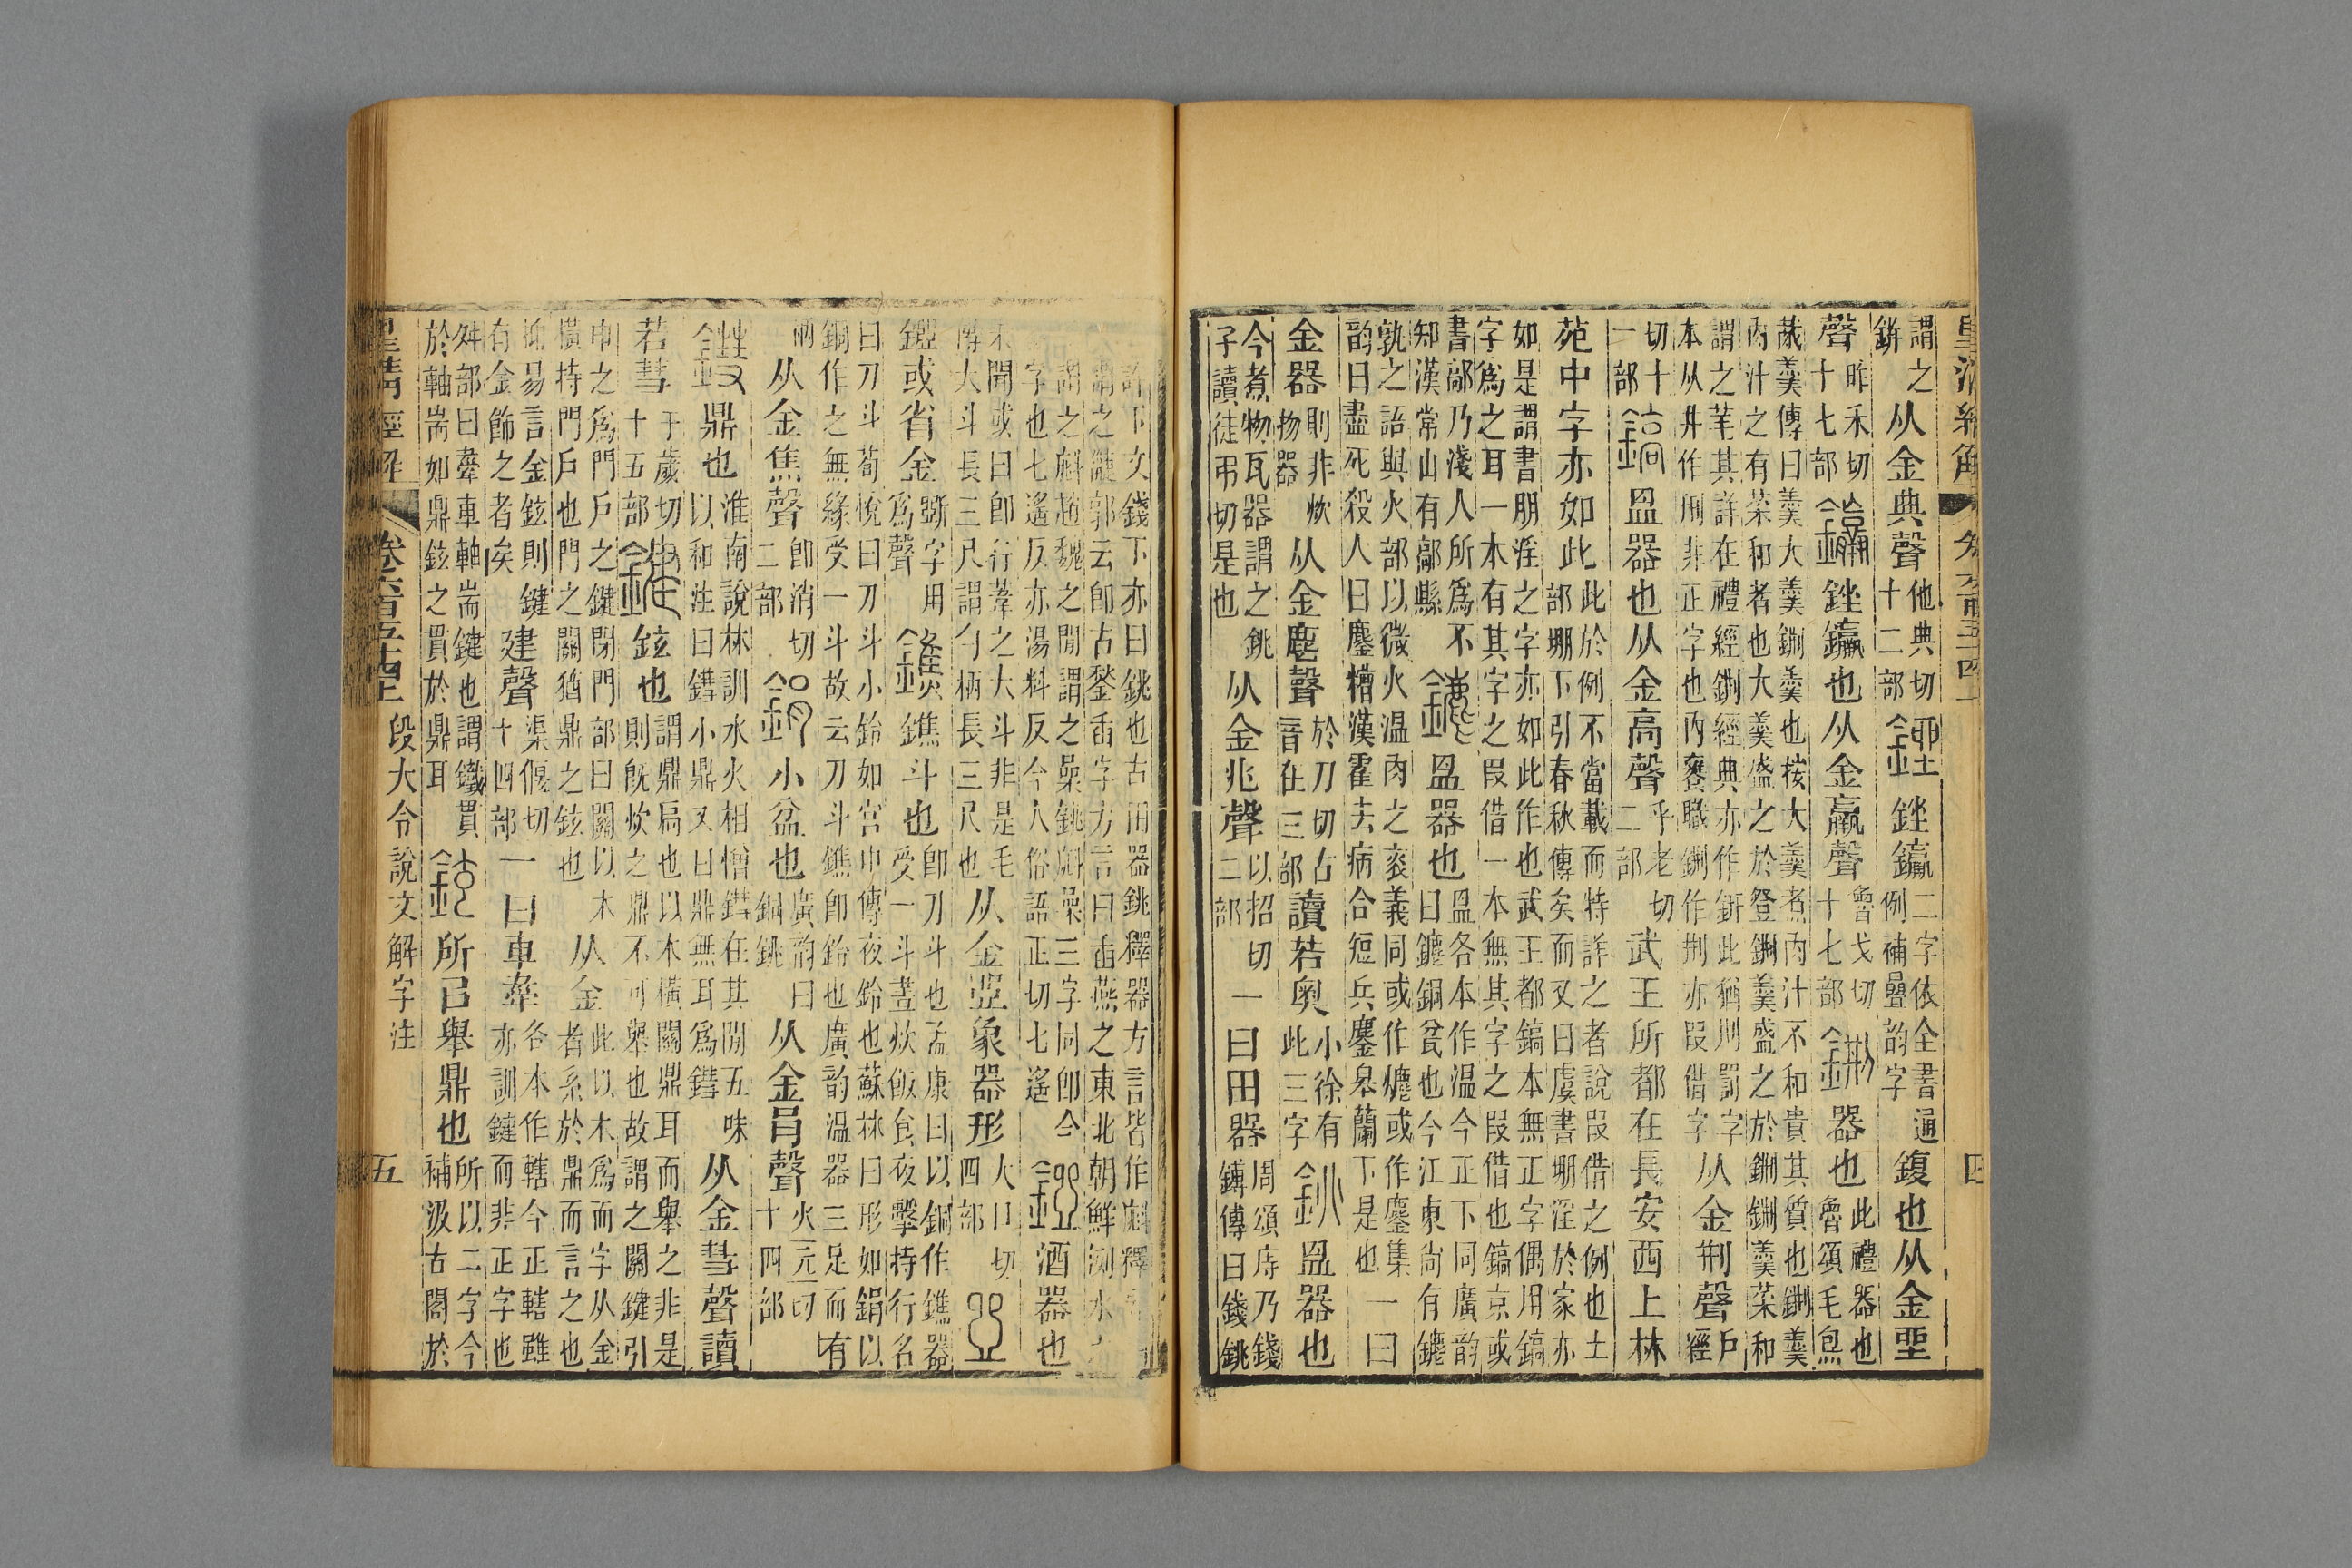 皇清經解 卷六百五十四上 四
謂之鉼从金典聲他典切十二部銼銼𨰠二字依全書通例補疊韵字鍑也从金坐
聲昨禾切十七部𨰠銼𨰠也从金羸聲魯戈切十七部鉶器也此禮器也魯頌毛炰
胾羹傳曰羹大羹鉶羹也按大羹煮肉汁不和貴其質也鉶羹
肉汁之有菜和者也大羹盛之於登鉶羹盛之於鉶鉶羹菜和
謂之芼其詳在禮經鉶經典亦作鈃此猶刑罰字
本从井作㓝非正字也內饔職鉶作荆亦叚借字从金荆聲戶經
切十一部鎬𥁕器也从金高聲乎老切二部武王所都在長安西上林
苑中字亦如此此於例不當載而特詳之者說叚借之例也土
部堋下引春秋傳矣而又曰虞書堋淫於家亦
如是謂書朋淫之字亦如此作也武王都鎬本無正字偶用鎬
字爲之耳一本有其字之叚借一本無其字之叚借也鎬京或
書鄗乃淺人所爲不知漢常山有鄗縣鑣𥁕器也𥁕各本作溫今正下同廣韵
曰鑣銅瓫也今江東尚有鑣
孰之語與火部以微火温肉之衮義同或作爊或作鏖集
韵曰盡死殺人曰鏖糟漢霍去病合短兵鏖皋蘭下是也一曰
金器則非炊物器从金麀聲於刀切古音在三部讀若奧小徐有此三字銚𥁕器也
今煮物瓦器謂之銚子讀徒弔切是也从金兆聲以招切二部一曰田器周頌庤乃錢鎛傳曰錢銚
許下文錢下亦曰銚也古田器銚釋器方言皆作斛釋器
謂之䥷郭云卽古鍫臿字方言曰臿燕之東北朝鮮洌水之
謂之斛趙魏之閒謂之喿銚斛喿三字同卽今
字也七遙反亦湯料反今人俗語正切七遙鋀酒器也
未聞或曰卽行葦之大斗非是毛傳大斗長三尺謂勺柄長三尺也从金𧯛象器形大口切四部𧯛
鋀或省金斵字用爲聲鐎鐎斗也卽刀斗也孟康曰以銅作鐎器受一斗晝炊飯食夜擊持行名
曰刀斗荀悅曰刀斗小鈴如宮中傳夜鈴也蘇林曰形如鋗以
銅作之無緣受一斗故云刀斗鐎卽鈴也廣韵温器三足而有
柄从金焦聲卽消切二部鋗小盆也廣韵曰銅銚从金肙聲火一元切十四部
鏏鼎也淮南說林訓水火相憎鏏在其閒五味以和注曰鏏小鼎又曰鼎無耳爲鏏从金彗聲讀
若彗于歲切十五部鍵鉉也謂鼎扃也以木橫關鼎耳而舉之非是則旣炊之鼎不可舉也故謂之關鍵引
申之爲門戶之鍵閉門部曰關以木橫持門戶也門之關猶鼎之鉉也从金此以木爲而字从金者系於鼎而言之也
抑易言金鉉則鍵有金飾之者矣建聲渠偃切十四部一曰車舝各本作轄今正轄雖亦訓鍵而非正字也
舛部曰舝車軸耑鍵也謂鐵貫於軸耑如鼎鉉之貫於鼎耳鉉所㠯舉鼎也所以二字今補汲古閣於
皇清經解 卷六百五十四上 段大令說文解字注 五